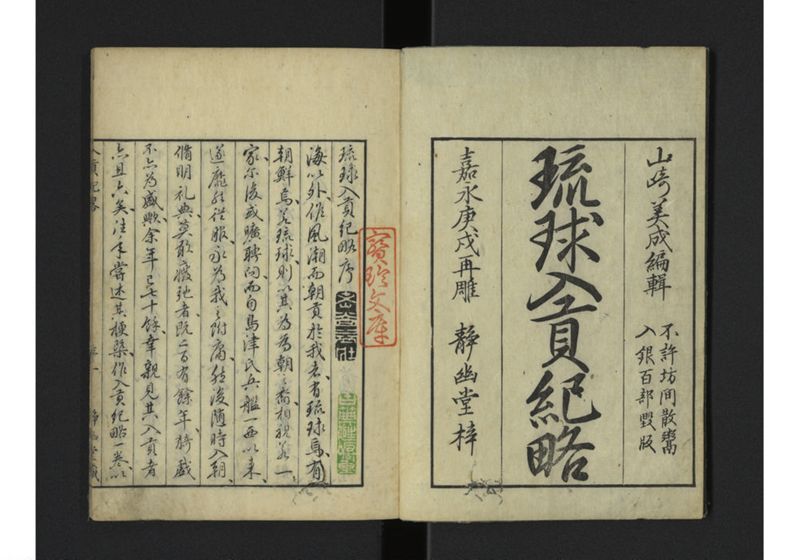 山崎美成編輯
不許坊間散鬻
入銀百部毀版
琉球入貢紀略
嘉永庚戌再雕 静幽堂梓
寳玲文庫
琉球入貢紀略序
海以外作風潮而朝貢於我者有琉球焉有
朝鮮焉若琉球則以其為為朝之裔相親若一
家尓後或曠聘問而自島津氏兵艦一西以来
遂靡然従服永為我之附庸然後随時入朝
脩明礼典莫敢癈弛者既二百有餘年猗戯
不亦為盛歟余年已七十餘幸親見其入貢者
六且六矣往年嘗述其梗槩作入貢紀略一巻以
入貢紀略